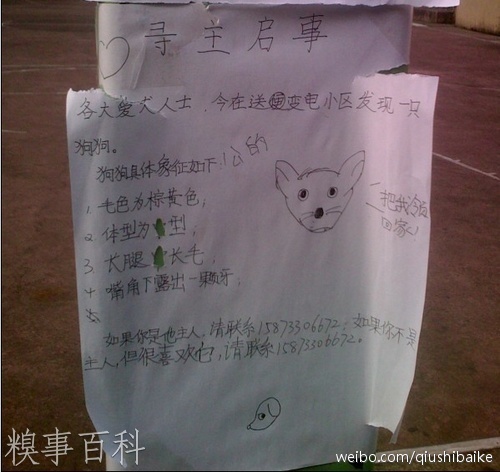 寻主启事
各大爱犬人士,今在送变电小区发现一只
狗狗。
狗狗具体象征如下:公的
1. 毛色为棕黄色;
2. 体型为型;
3. 长腿长毛;
4 嘴角下露出一颗牙;
二把我领回
回家!
如果你是他主人,请联系15873306672;如果你不是
主人,但很喜欢它,请联系15873306672。
糗事百科
weibo.com/qiushibaike